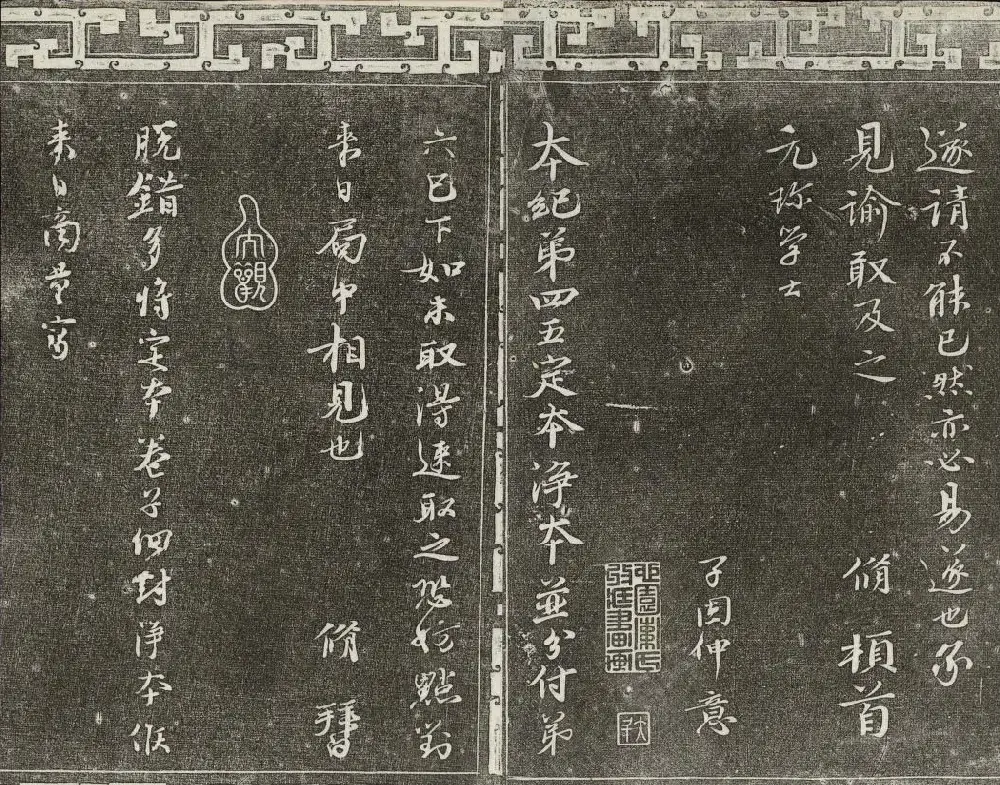 遂請不能已然亦必易遂也承
見諭敢及之 脩頓首
元珍學士
子因仲意
本紀第四五定本淨本並分付弟
六已下如未取得速取之恐妨點對
來日局中相見也 脩 拜白
大觀
脱錯多將定本卷子細對淨本候
來日商量寫